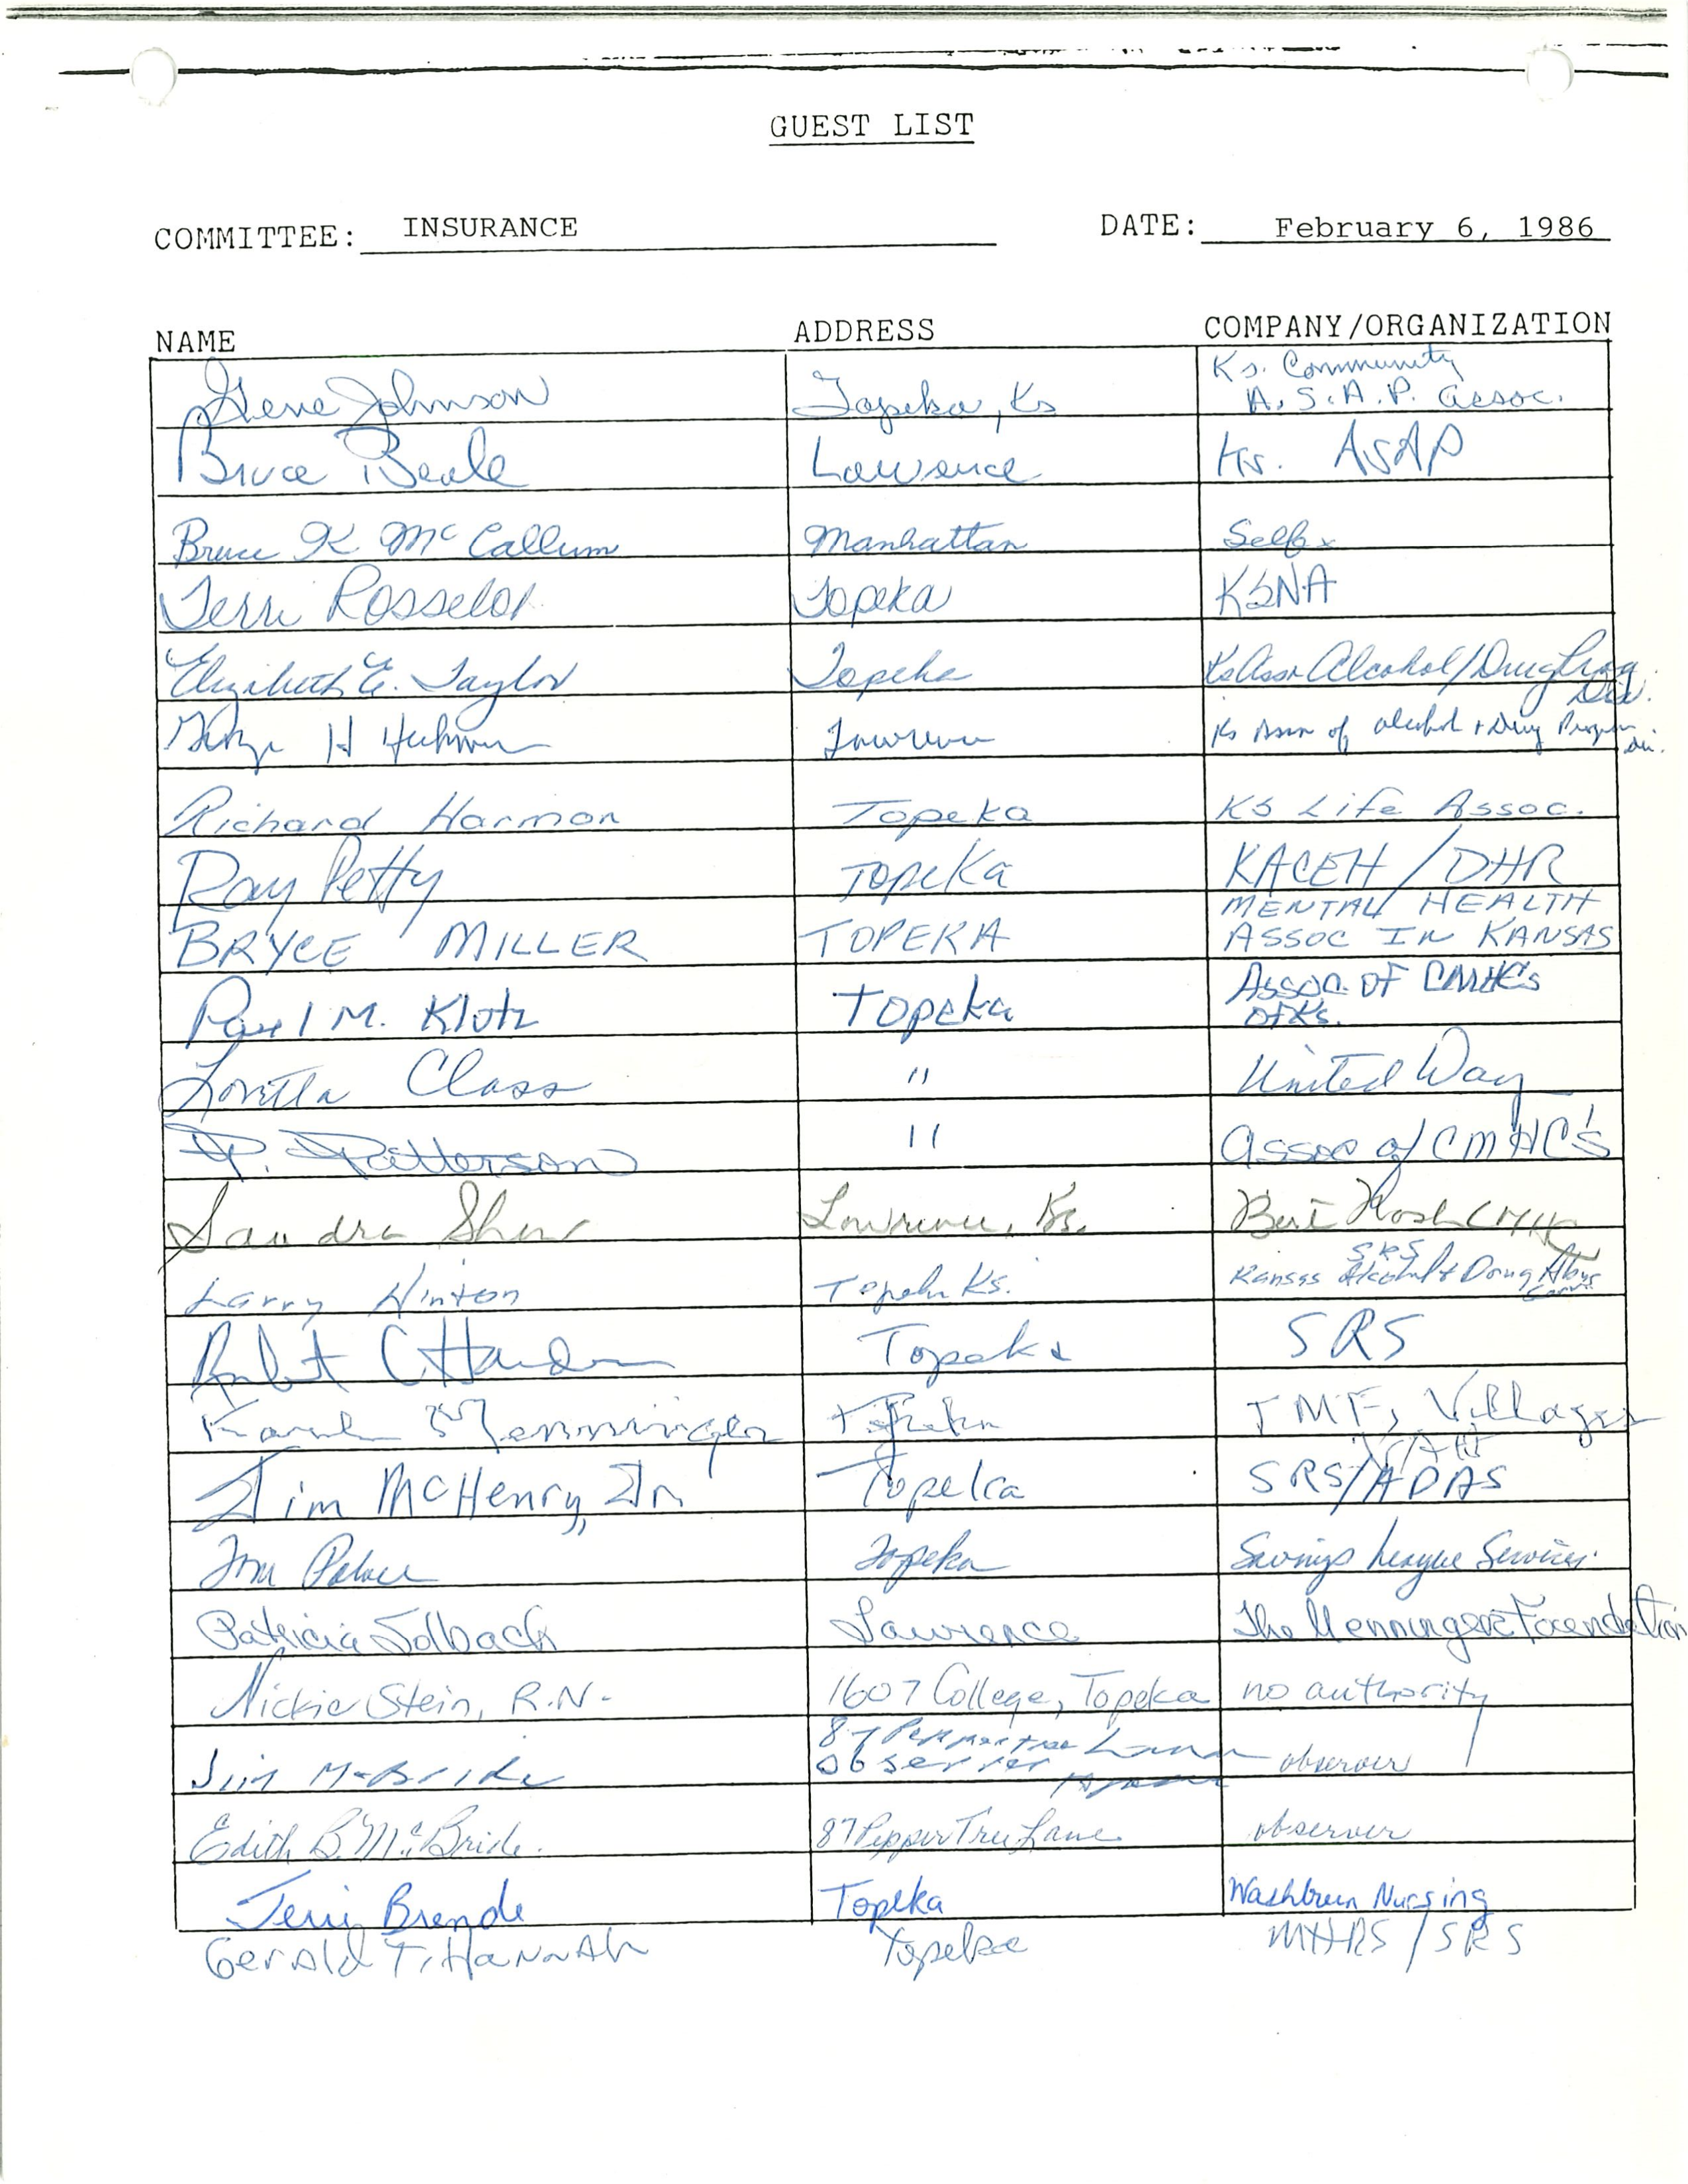 GUEST LIST
COMMITTEE: INSURANCE DATE: February 6, 1986
NAME ADDRESS COMPANY/ORGANIZATION
Gene Johnson Topeka, Ks Ks. Community
A.S.A.P. Assoc.
Bruce Beale Lawrence Ks. ASAP
Bruce K McCallum Manhattan Self
Terri Rosselot Topeka KSNA
Elizabeth E. Taylor Topeka Ks Assn Alcohol/Drug Prog
Dir.
H Lawrence Ks Assn of alcohol + Drug Program
dir.
Richard Harmon Topeka KS Life Assoc.
Ray Petty Topeka KACEH / DHR
BRYCE MILLER TOPEKA MENTAL HEALTH
ASSOC IN KANSAS
Paul M. Klotz Topeka Assoc. of CMHC's
of Ks.
Loretta Class " United Way
P. Patterson " Assoc of CMHC's
Sandra Shaw Lawrence, Ks. Bert Nash CMHC
Larry Hinton Topeka Ks. SRS
Kansas Alcohol & Drug Abuse
Robert C Harder Topeka SRS
Karl Menninger Topeka TMF, Villages
Jim McHenry, Jr Topeka SRS/ADAS
Tom Topeka Savings League Services
Patricia Solbach Lawrence The Menninger Foundation
Nickie Stein, R.N. 1607 College, Topeka no authority
Jim McBride 87 Peppertree Lane observer
observer Topeka
Edith B. McBride. 87 Pepper Tree Lane observer
Terri Brende Topeka Washburn Nursing
Gerald T. Hannah Topeka MHRS / SRS